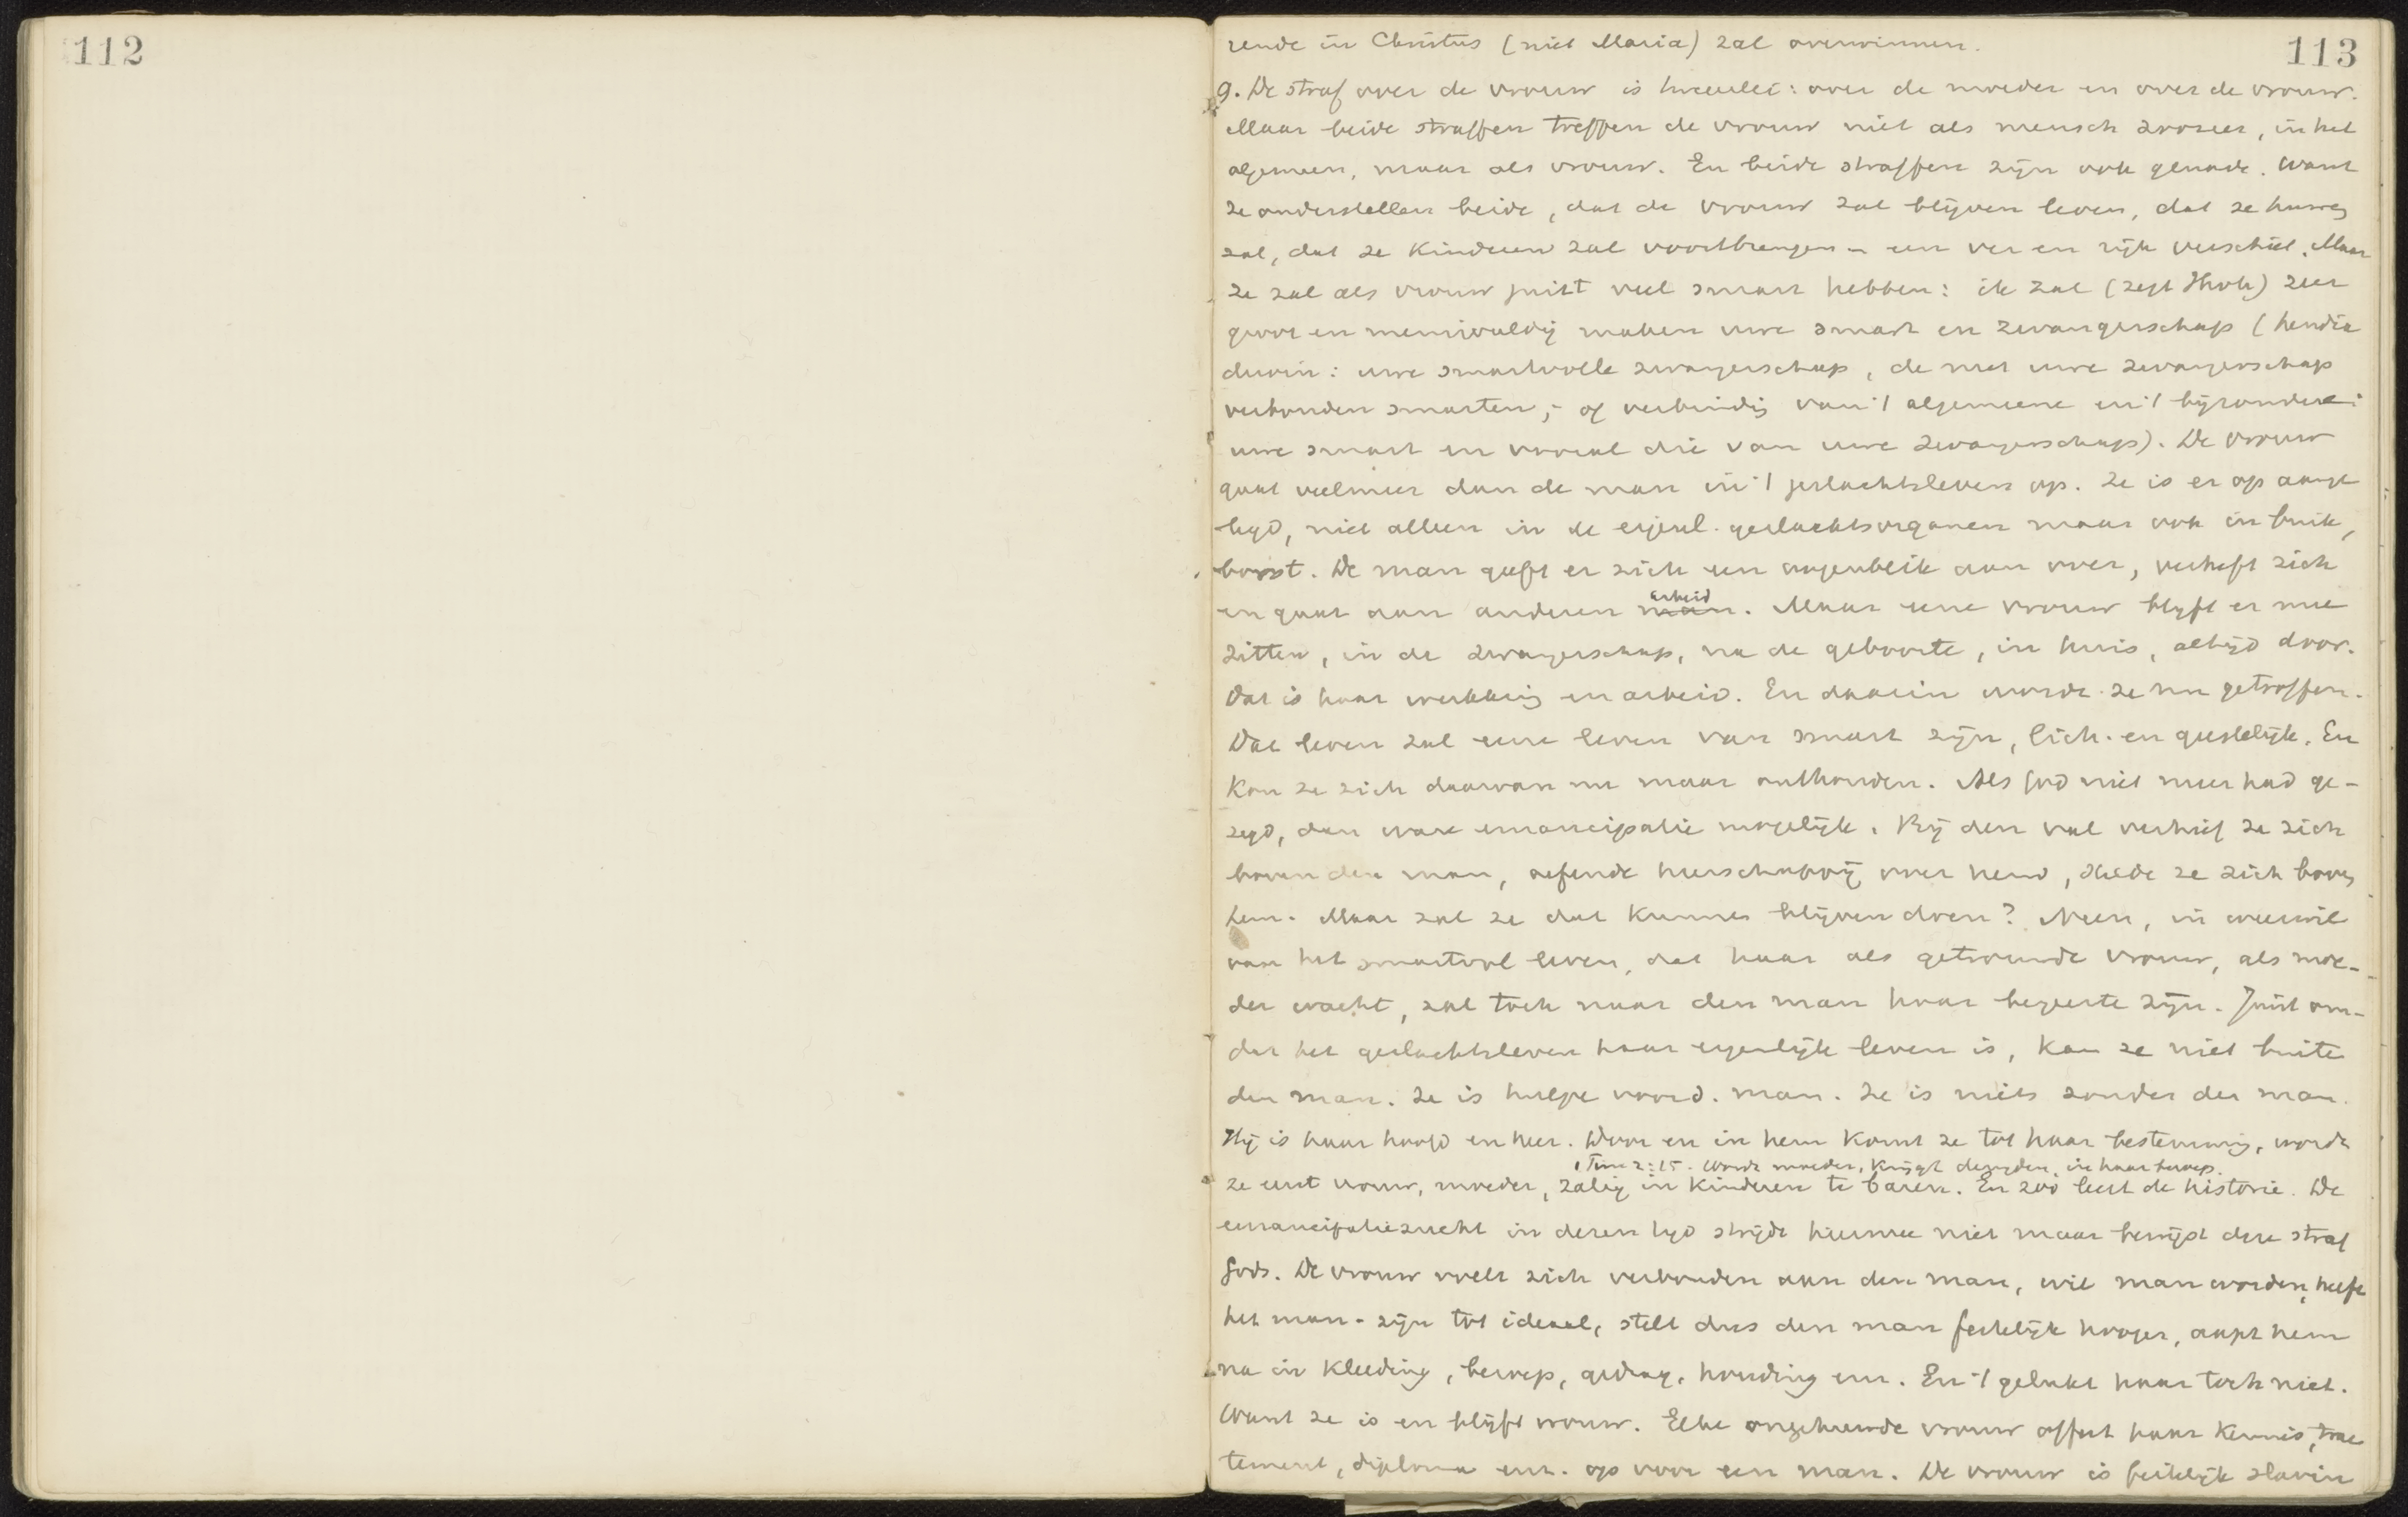 112
113
rende in Christus (niet Maria) zal overwinnen.
9. De straf over de vrouw is tweeërlei: over de moeder en over de vrouw.
Maar beide straffen treffen de vrouw niet als mensch zoozeer, in het
algemeen, maar als vrouw. En beide straffen zijn ook genade. Want
ze onderstellen beide, dat de vrouw zal blijven leven, dat ze huwen
zal, dat ze kinderen zal voortbrengen - een ver en rijk verschiet. Maar
ze zal als vrouw juist veel smart hebben: ik zal (zegt Jhvh) zeer
groot en menigvuldig maken uwe smart en zwangerschap (hendia
duoin: uwe smartvolle zwangerschap, de met uwe zwangerschap
verbonden smarten; - of verbinding van 't algemeene en 't bijzondere:
uwe smart en vooral die van uwe zwangerschap). De vrouw
gaat veelmeer dan de man in 't geslachtsleven op. Ze is er op aange
legd, niet alleen in de eigenl. geslachtsorganen maar ook in buik,
borst. De man geeft er zich een oogenblik aan over, verheft zich
en gaat aan anderen man arbeid. Maar eene vrouw blijft er mee
zitten, in de zwangerschap, na de geboorte, in huis, altijd door.
Dat is haar werkkring en arbeid. En daarin wordt ze nu getroffen.
Dat leven zal eene leven van smart zijn, lich. en geestelijk. En
kon ze zich daarvan nu maar onthouden. Als God niet meer had ge-
zegd, dan ware emancipatie mogelijk. Bij den val verhief ze zich
boven den man, oefende heerschappij over hem, stelde ze zich boven
hem. Maar zal ze dat kunnen blijven doen? Neen, in weerwil
van het smartvol leven, dat haar als getrouwde vrouw, als moe-
der wacht, zal toch naar den man haar begeerte zijn. Juist om-
dat het geslachtsleven haar eigenlijk leven is, kan ze niet buiten
den man. Ze is hulpe voor d. man. Ze is niets zonder den man.
Hij is haar hoofd en heer. Door en in hem komt ze tot haar bestemming, wordt
1 Tim 2:15. Wordt moeder, krijgt deugden, in haar beroep.
ze eerst vrouw, moeder, zalig in kinderen te baren. En zoo leert de historie. De
emancipatiezucht in dezen tijd strijdt hiermee niet maar bewijst deze straf
Gods. De vrouw voelt zich verbonden aan den man, wil man worden, heeft
het man-zijn tot ideaal, stelt dus den man feitelijk hooger, aapt hem
na in kleeding, beroep, gedrag, houding enz. En 't gelukt haar toch niet.
Want ze is en blijft vrouw. Elke ongehuwde vrouw offert haar kennis, trac
tement, diploma enz. op voor een man. De vrouw is feitelijk slavin